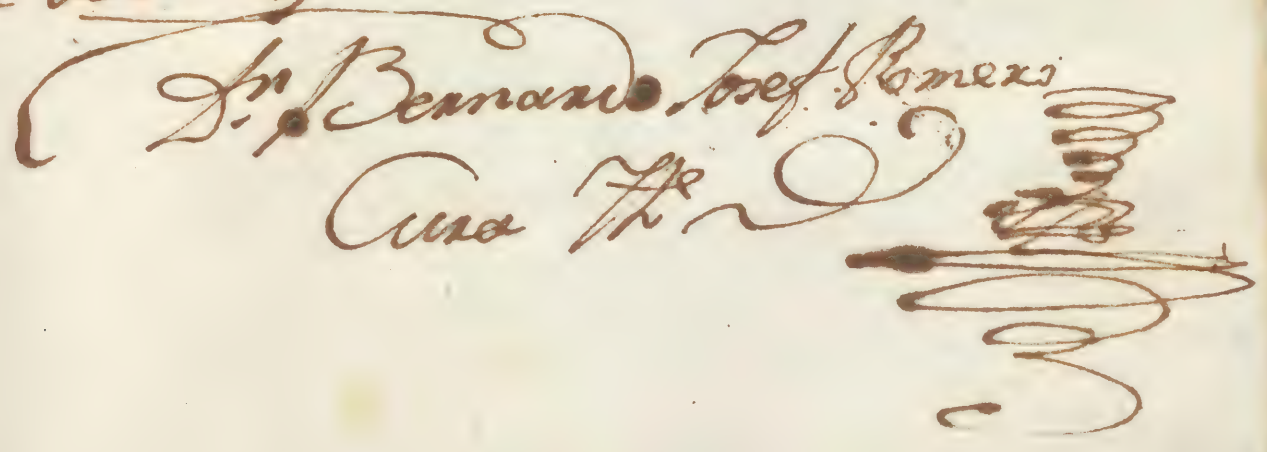 Dn. Bernardo Josef Romero
Cura Tte